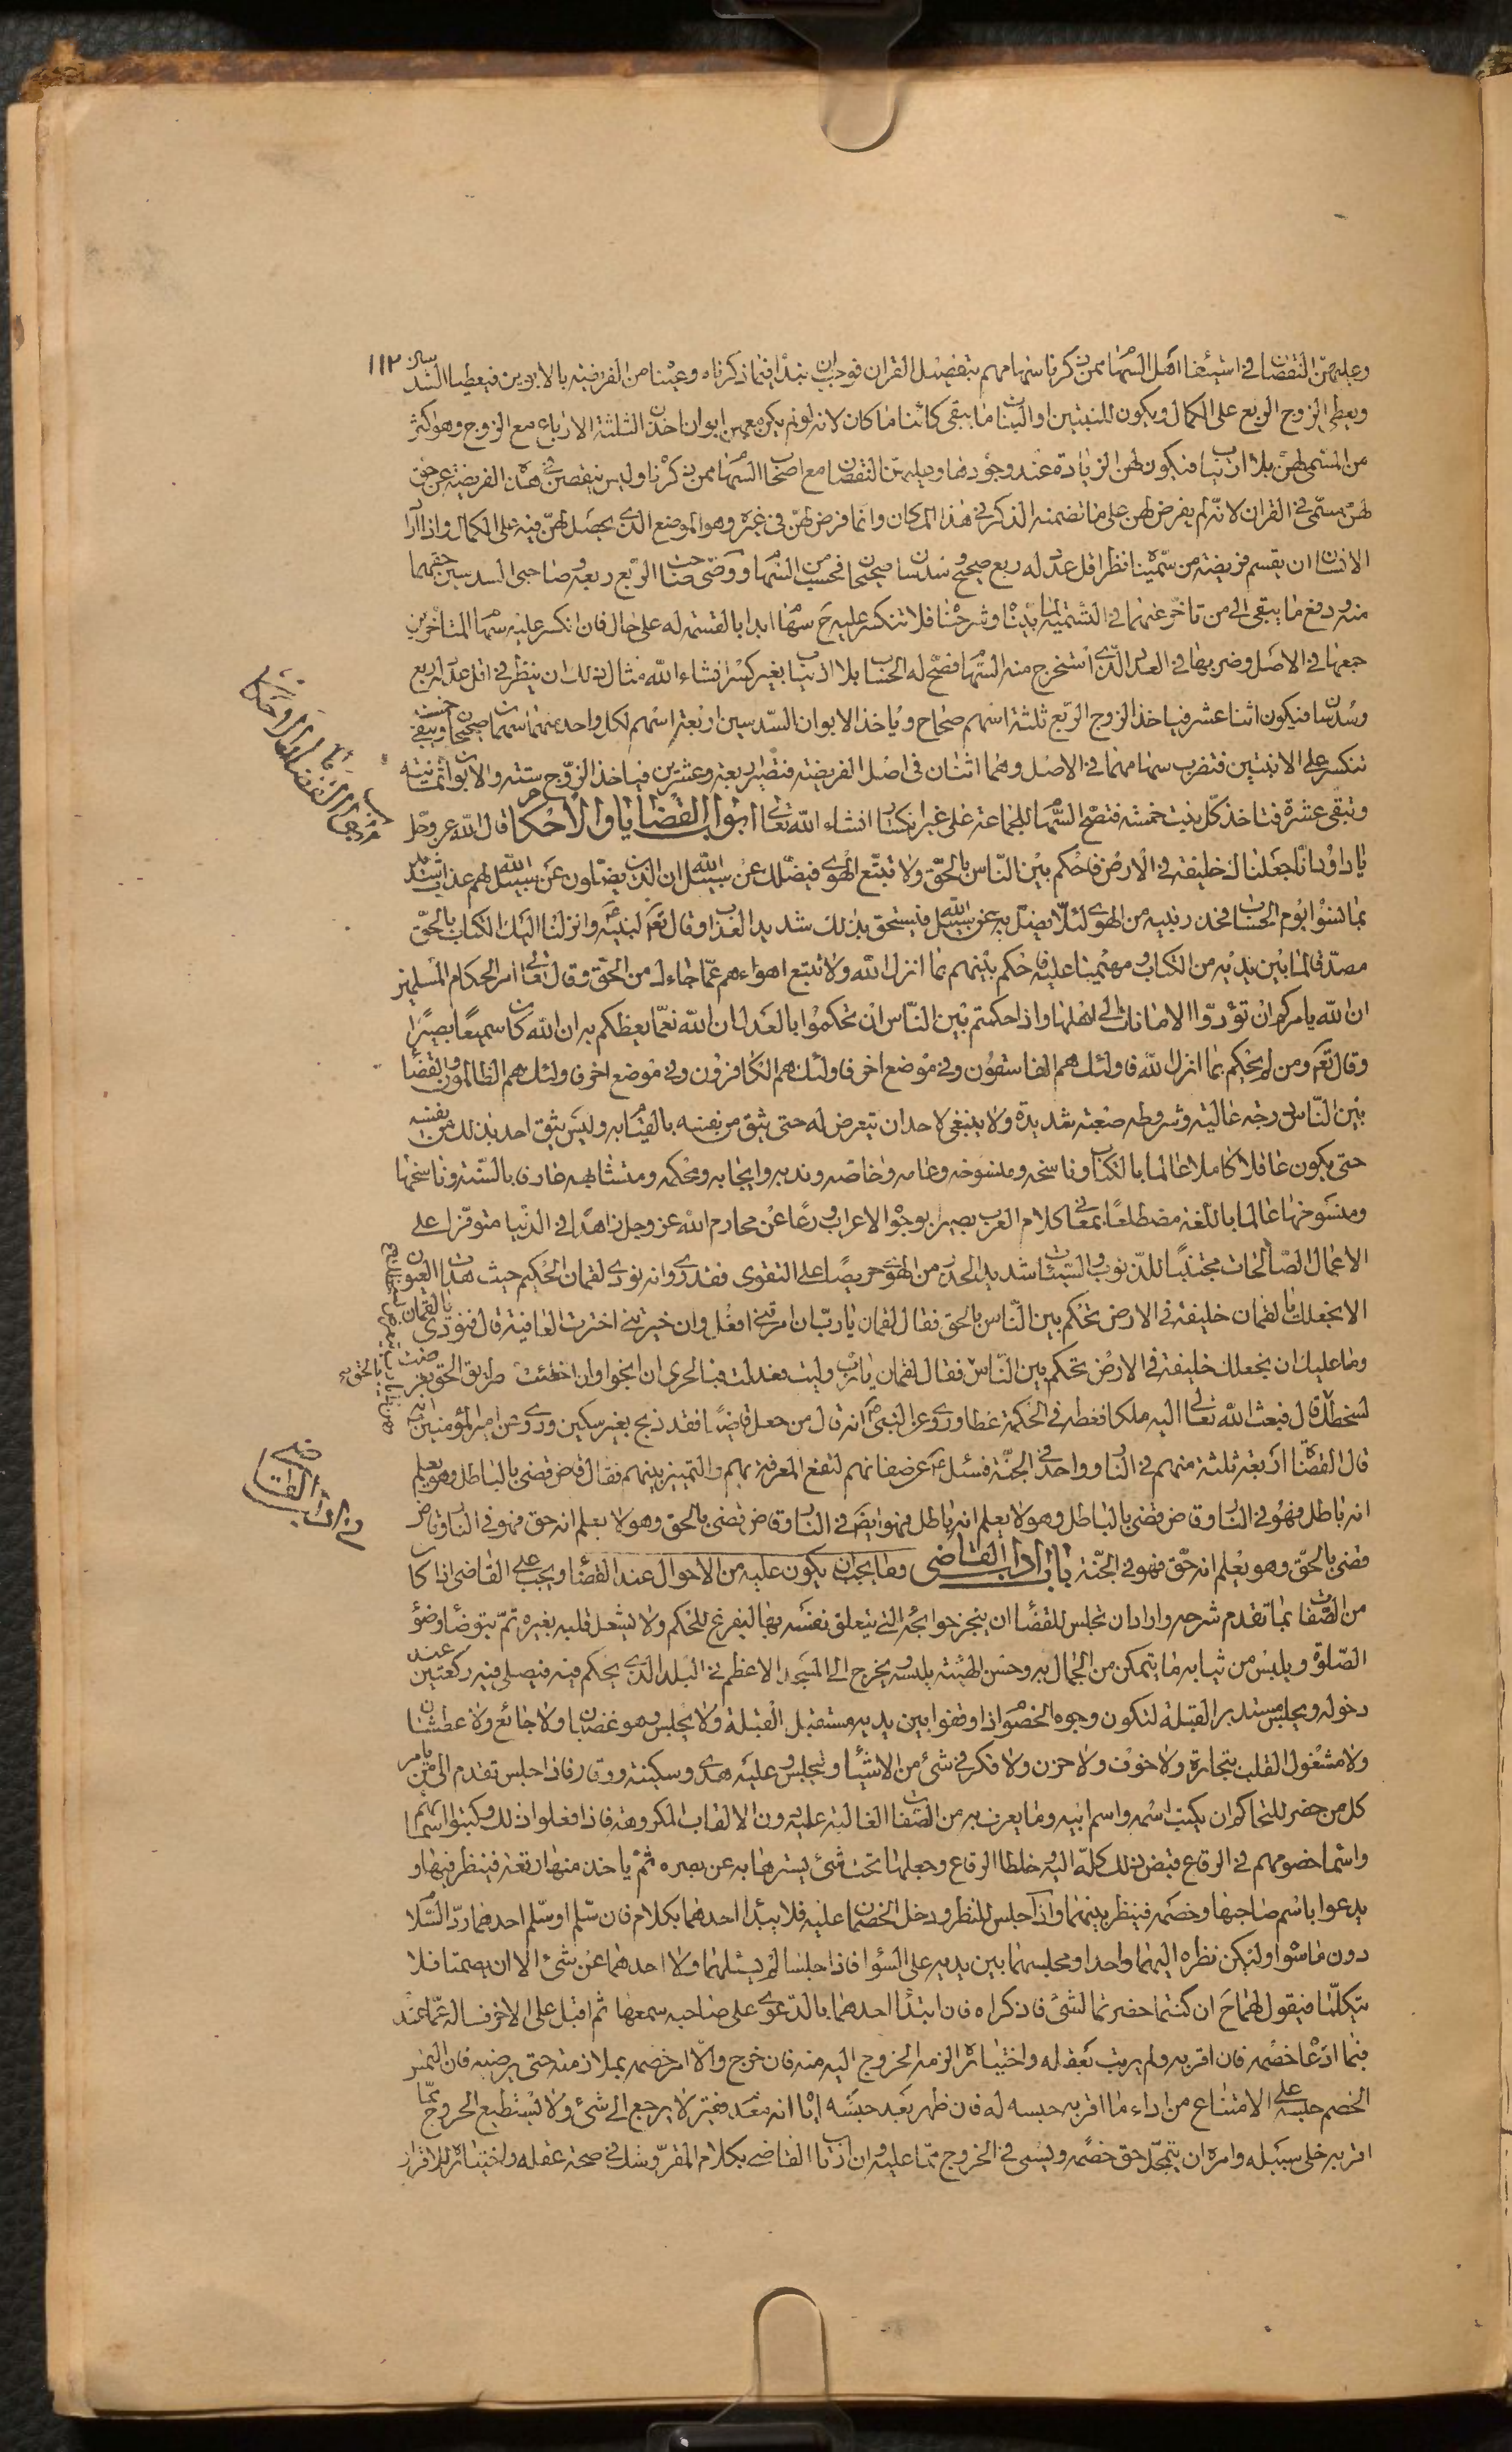 وعليهن النقصان في استيفاء اهل السهام ممن ذكرناسهامهم بتفصيل القران فوجب ان نبدا فيما ذكرناه وعيننا من الفريضة بالابوين فيعطيا السدسان ١١٢
ويعطى الزوج الربع على الكمال ويكون للبنتين او البنات ما يبقى كائنا ما كان لانه لو لم يكن معهن ابوان اخذن الثلثة الارباع مع الزوج وهو اكثر
من المسمى لهن بلا ارتياب فيكون لهن الزيادة عند وجودها وعليهن النقصان مع اصحاب السهام ممن ذكرنا وليس ينقصن في هذه الفريضة عن حق
لهن مسمى في القران لانه لم يفرض لهن على ما تضمنه الذكر في هذا المكان وانما فرض لهن في غيره وهو الموضع الذي يحصل لهن فيه على الكمال واذا اراد
الانسان ان يقسم فريضة من سميناه نظر اقل عدد له ربع صحيح وسدسان صحيحان فحسب من السهام ووفى صاحب الربع ربعه وصاحبي السدسين حقهما
منه ودفع ما يبقى الى من تاخر عنهما في التسمية لما بيناه وشرحناه فلا تنكسر عليه ح سهام ابدا بالقسمة له على حال فان انكسر عليه سهام المتاخرين
جمعها في الاصل وضربها في العدد الذي استخرج منه السهام فصح له الحساب بلا ارتياب بغير كسر انشاء الله مثال ذلك ان ينظر في اقل عدد له ربع
وسدسان فيكون اثنا عشر فياخذ الزوج الربع ثلثة اسهم صحاح وياخذ الابوان السدسين اربعة اسهم لكل واحد منهما سهمان صحيحان ويبقى خمسة
تنكسر على الابنتين فتضرب سهامهما في الاصل وهما اثنان في اصل الفريضة فتصير اربعة وعشرين فياخذ الزوج ستة والابوان ثمانية
وتبقى عشرة فتاخذ كل بنت خمسة فتصح السهام للجماعة على غير انكسار انشاء الله تعالى ابواب القضايا والاحكام قال الله عز وجل
يا داود انا جعلناك خليفة في الارض فاحكم بين الناس بالحق ولا تتبع الهوى فيضلك عن سبيل الله ان الذين يضلون عن سبيل الله لهم عذاب شديد
بما نسوا يوم الحساب فحذر نبيه من الهوى لئلا يضل به عن سبيل الله فيستحق بذلك شديد العذاب وقال تعالى لنبيه ع وانزلنا اليك الكتاب بالحق
مصدقا لما بين يديه من الكتاب ومهيمنا عليه فاحكم بينهم بما انزل الله ولا تتبع اهواءهم عما جاءك من الحق وقال تعالى امر الحكام المسلمين
ان الله يامركم ان تؤدوا الامانات الى اهلها واذا حكمتم بين الناس ان تحكموا بالعدل ان الله نعما يعظكم به ان الله كان سميعا بصيرا
وقال تعالى ومن لم يحكم بما انزل الله فاولئك هم الفاسقون وفي موضع اخر فاولئك هم الكافرون وفي موضع اخر فاولئك هم الظالمون والقضاء
بين الناس درجة عالية وشروطه صعبة شديدة ولا ينبغي لاحد ان يتعرض له حتى يثق من نفسه بالقيام به وليس يثق احد بذلك من نفسه
حتى يكون عاقلا كاملا عالما بالكتاب وناسخه ومنسوخه وعامه وخاصه وندبه وايجابه ومحكمه ومتشابهه عارفا بالسنة وناسخها
ومنسوخها عالما باللغة مضطلعا بمعاني كلام العرب بصيرا بوجوه الاعراب ورعا عن محارم الله عز وجل زاهدا في الدنيا متوفرا على
الاعمال الصالحات مجتنبا للذنوب والسيئات شديد الحذر من الهوى حريصا على التقوى فقد روى انه نودي لقمان الحكيم حيث هدات العيون
الا نجعلك يا لقمان خليفة في الارض تحكم بين الناس بالحق فقال لقمان يا رب ان امرتني افعل وان خيرتني اخترت العافية قال فنودي يا لقمان
وما عليك ان نجعلك خليفة في الارض تحكم بين الناس فقال لقمان يا رب وليت فعدلت فبالحري ان انجو وان اخطئت طريق الحق
لسخطك قال فبعث الله تعالى اليه ملكا فغطه في الحكمة غطا وروى عن النبي ص انه قال من جعل قاضيا فقد ذبح بغير سكين وروى عن امير المؤمنين ع انه
قال القضاة اربعة ثلثة منهم في النار وواحد في الجنة فسئل ع عن صفاتهم لتقع المعرفة بهم والتمييز بينهم فقال قاض قضى بالباطل وهو يعلم
انه باطل فهو في النار وقاض قضى بالباطل وهو لا يعلم انه باطل فهو ايضا في النار وقاض قضى بالحق وهو لا يعلم انه حق فهو في النار وقاض
قضى بالحق وهو يعلم انه حق فهو في الجنة باب اداب القاضي وما يجب ان يكون عليه من الاحوال عند القضاء ويجب على القاضي اذا كان
من الصفات بما تقدم شرحه واراد ان يجلس للقضاء ان ينجز حوائجه التي يتعلق نفسه بها ليفرغ للحكم ولا يشغل قلبه بغيره ثم يتوضأ وضوء
الصلوة ويلبس من ثيابه ما يتمكن من الجمال به وحسن الهيئة بلبسه ويخرج الى المسجد الاعظم في البلد الذي يحكم فيه فيصلي فيه ركعتين عند
دخوله ويجلس مستدبر القبلة لتكون وجوه الخصوم اذا وقفوا بين يديه مستقبل القبلة ولا يجلس وهو غضبان ولا جائع ولا عطشان
ولا مشغول القلب بتجارة ولا خوف ولا حزن ولا فكر في شئ من الاشياء ويجلس وعليه هدى وسكينة ووقار فاذا جلس تقدم الى من يامر
كل من حضر للتحاكم ان يكتب اسمه واسم ابيه وما يعرف به من الصفات الغالبة عليه دون الالقاب المكروهة فاذا فعلوا ذلك وكتبوا اسماءهم
واسماء خصومهم في الرقاع قبض ذلك كله اليه وخلط الرقاع وجعلها تحت شئ يسترها به عن بصره ثم ياخذ منها رقعة فينظر فيها و
يدعوا باسم صاحبها وخصمه فينظر بينهما واذا جلس للنظر ودخل الخصمان عليه فلا يبدا احدهما بكلام فان سلم او سلم احدهما رد السلام
دون ما سواه وليكن نظره اليهما واحدا ومجلسهما بين يديه على السواء فاذا جلسا لم يسئلهما ولا احدهما عن شئ الا ان يصمتا فلا
يتكلما فيقول لهما ح ان كنتما حضرتما لشئ فاذكراه فان ابتدأ احدهما بالدعوى على صاحبه سمعها ثم اقبل على الاخر فساله عما عنده
فيما ادعاه خصمه فان اقر به ولم يرتب بعقله واختياره الزمه الخروج اليه منه فان خرج والا امر خصمه بملازمته حتى يرضيه فان التمس
الخصم حبسه على الامتناع من اداء ما اقر به حبسه له فان ظهر بعد حبسه اياه انه معدم فقير لا يرجع الى شئ ولا يستطيع الخروج مما
اقر به خلى سبيله وامره ان يتمحل حق خصمه ويسعى في الخروج مما عليه وان ارتاب القاضي بكلام المقر وشك في صحة عقله واختياره للاقرار